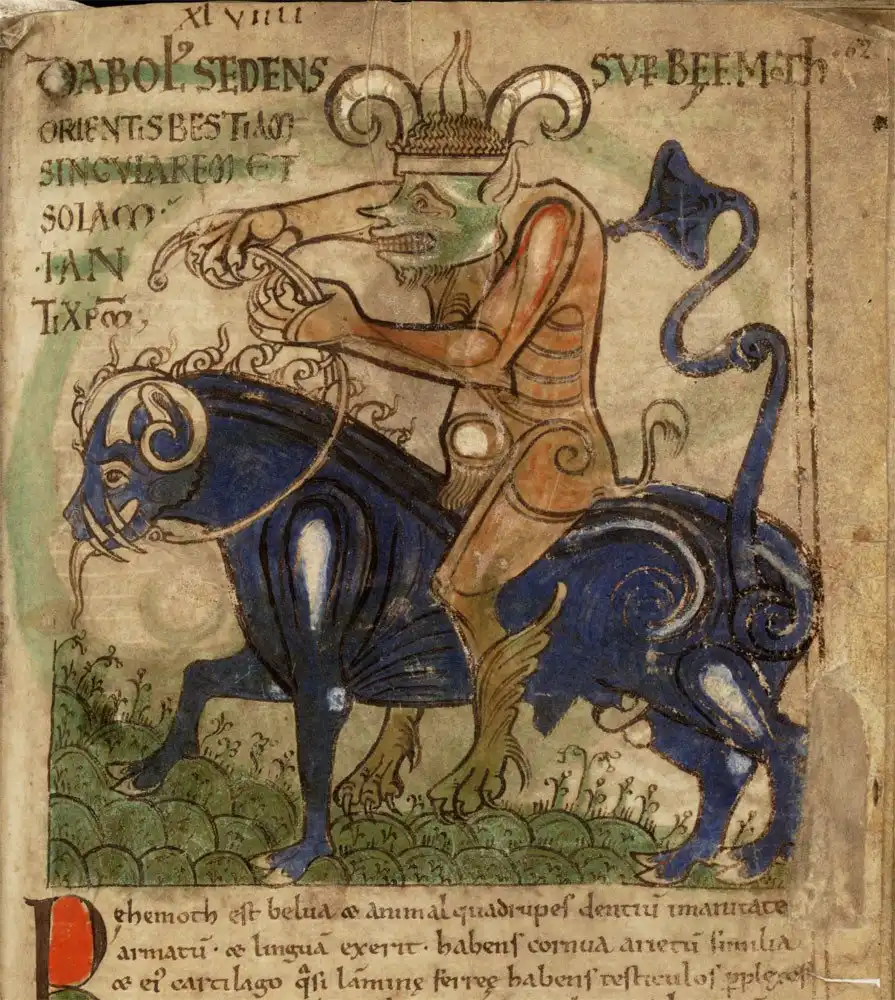 XLVIIII
DIABOLꝰ SEDENS SUPER BEEMOTH 62
ORIENTIS BESTIAM
SINGULAREM ET
SOLAM
·IAN
TIXPM̄;
Behemoth est belua & animal quadrupes dentiū inmanitate
armatū · & linguā exerit · habens cornua arietū similia
& eiꝰ cartilago q̄si lāminę ferreę habens testiculos ꝑplexos